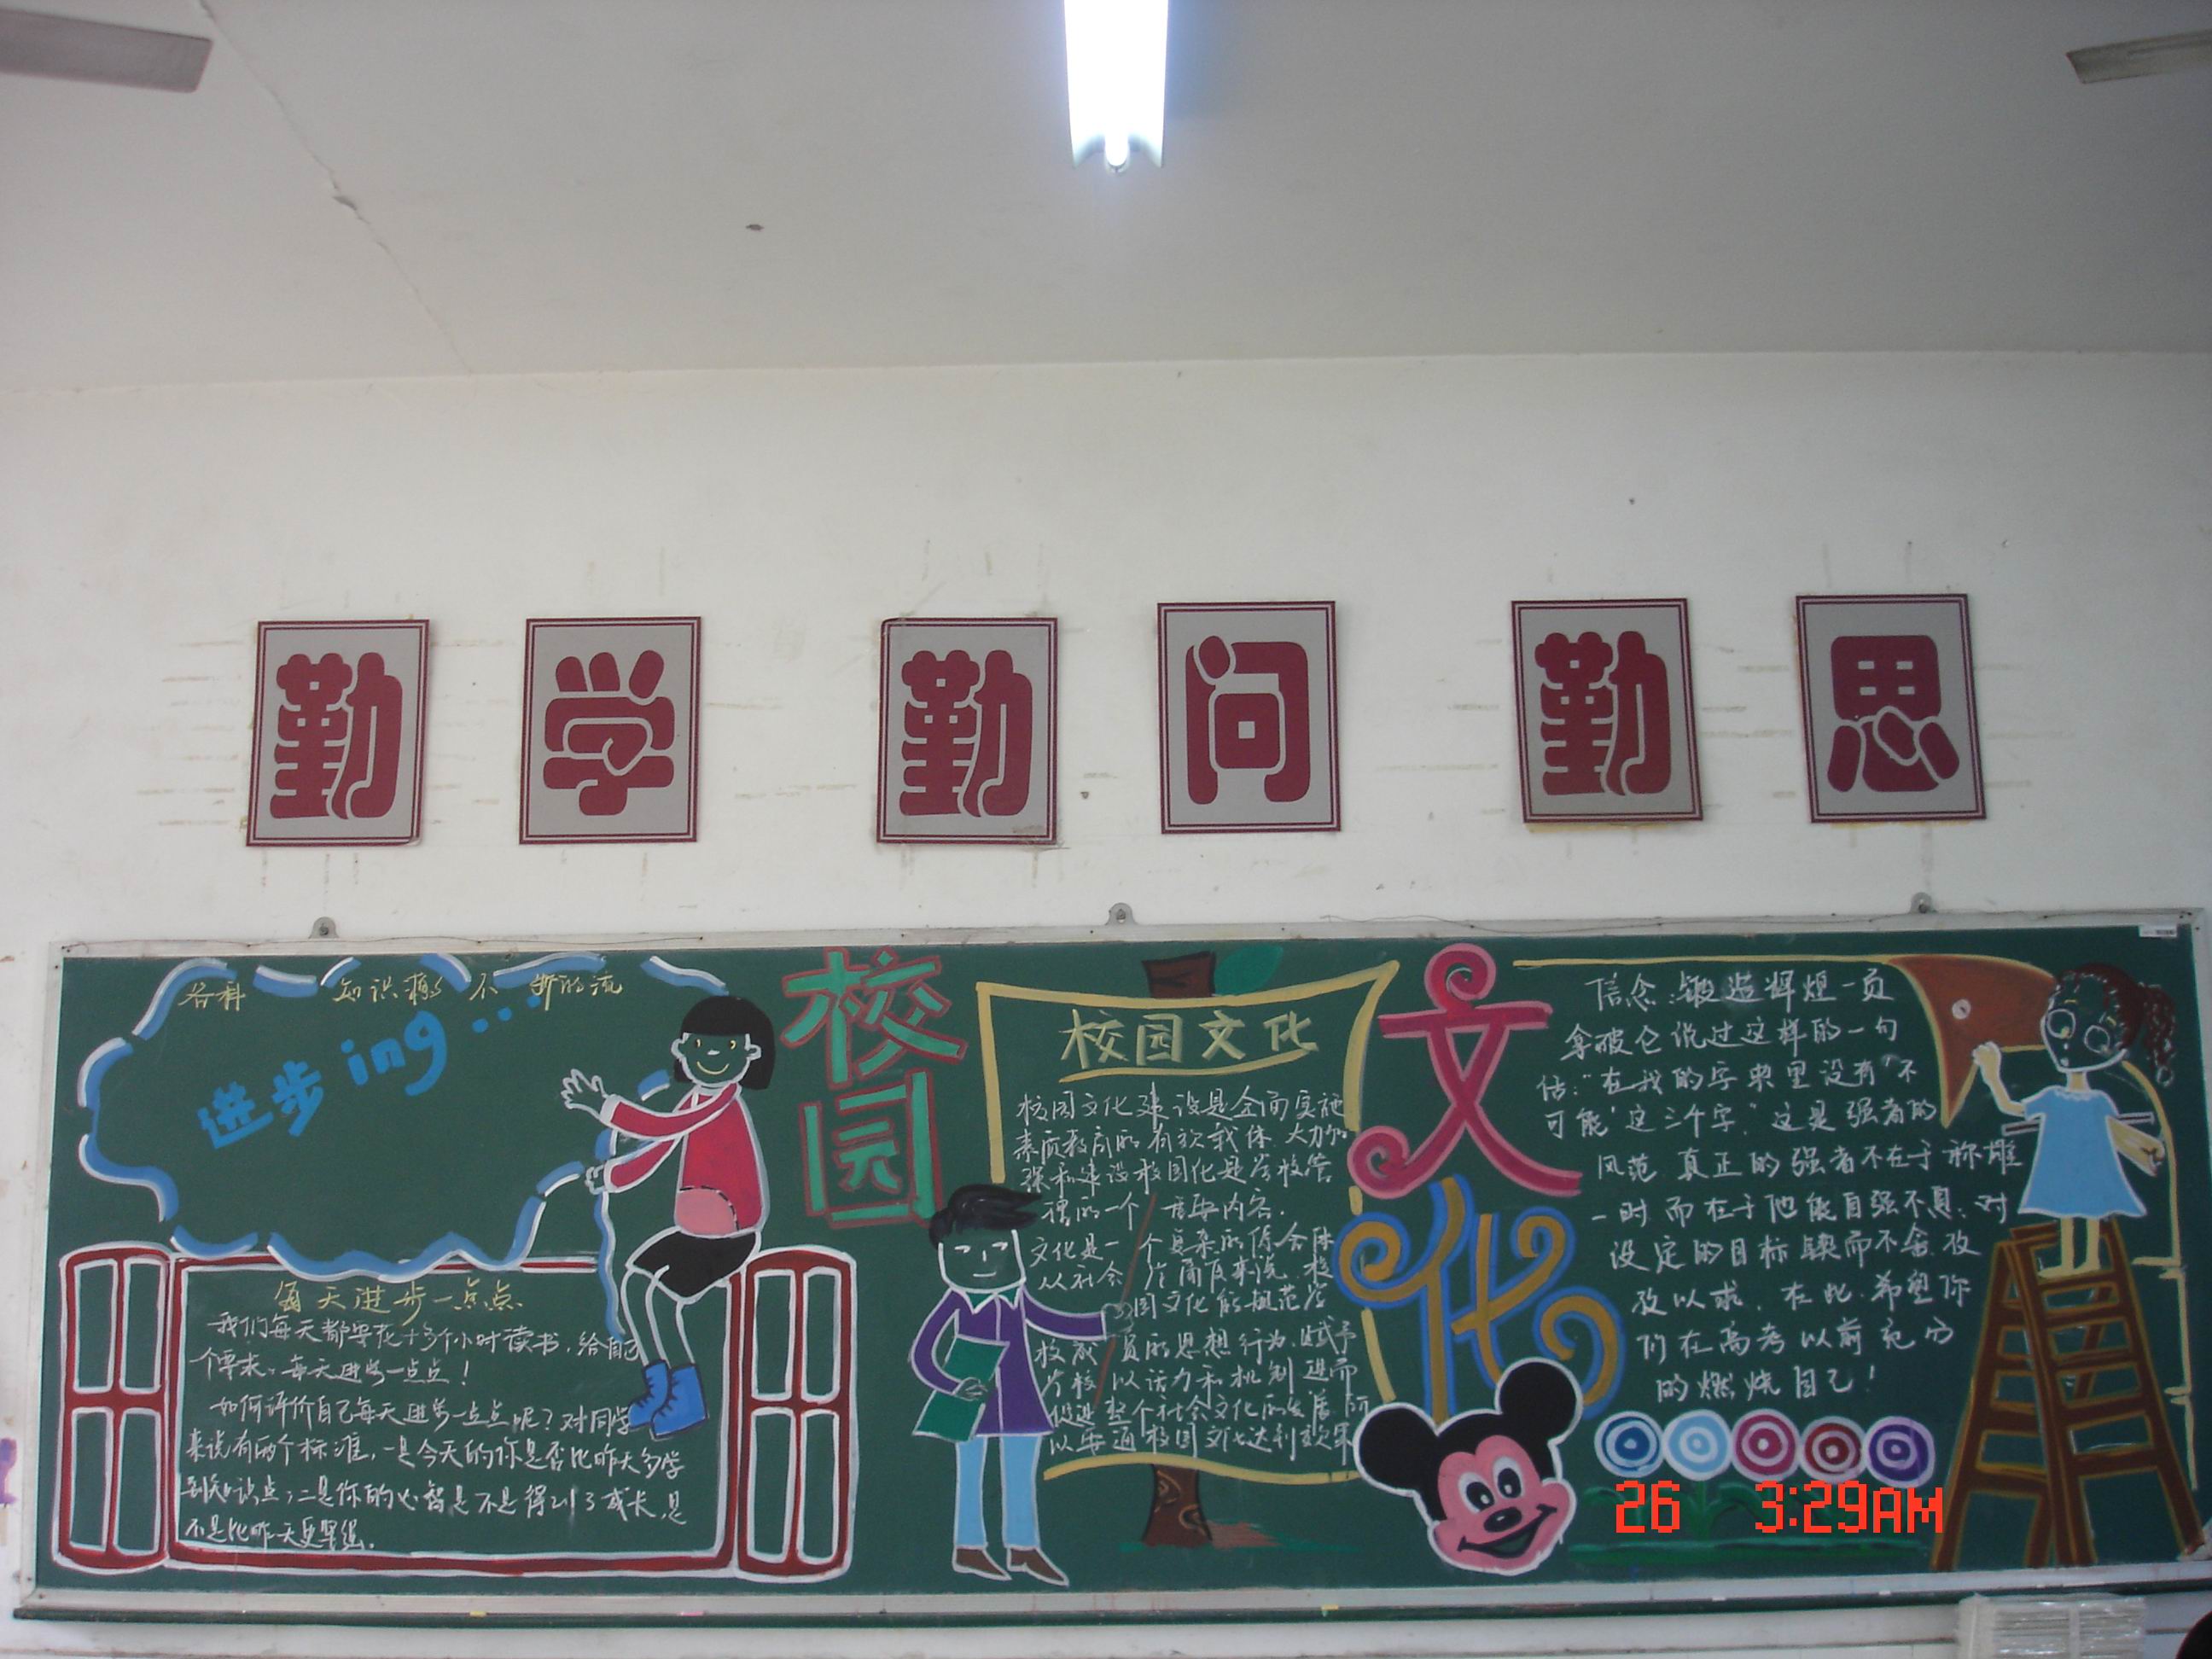 勤 学 勤 问 勤 思
各科 知识
进步ing...
每天进步一点点
我们每天都要花十多个小时读书,给自己
个要求:每天进步一点点!
如何评价自己每天进步一点点呢?对同学
来说有两个标准,一是今天的你是否比昨天多学
到知识点;二是你的心智是不是得到了成长,是
不是比昨天更坚强.
校园
校园文化
校园文化建设是全面实施
素质教育的有效载体.大力加
强和建设校园化是学校管
理的一个重要内容.
文化是一个复杂的综合体
从社会 角度来说,校
园文化能规范学
校成员的思想行为,赋予
学校以活力和机制 进而
促进整个社会文化的发展 所
以要通校园文化达到效果
文化
信念:锻造辉煌一页
拿破仑说过这样的一句
估:"在我的字典里没有'不
可能'这三个字."这是强者的
风范 真正的强者不在于称雄
一时 而在于他能自强不息;对
设定的目标锲而不舍,孜
孜以求.在此.希望你
们在高考以前充分
的燃烧自己!
26 3:29AM